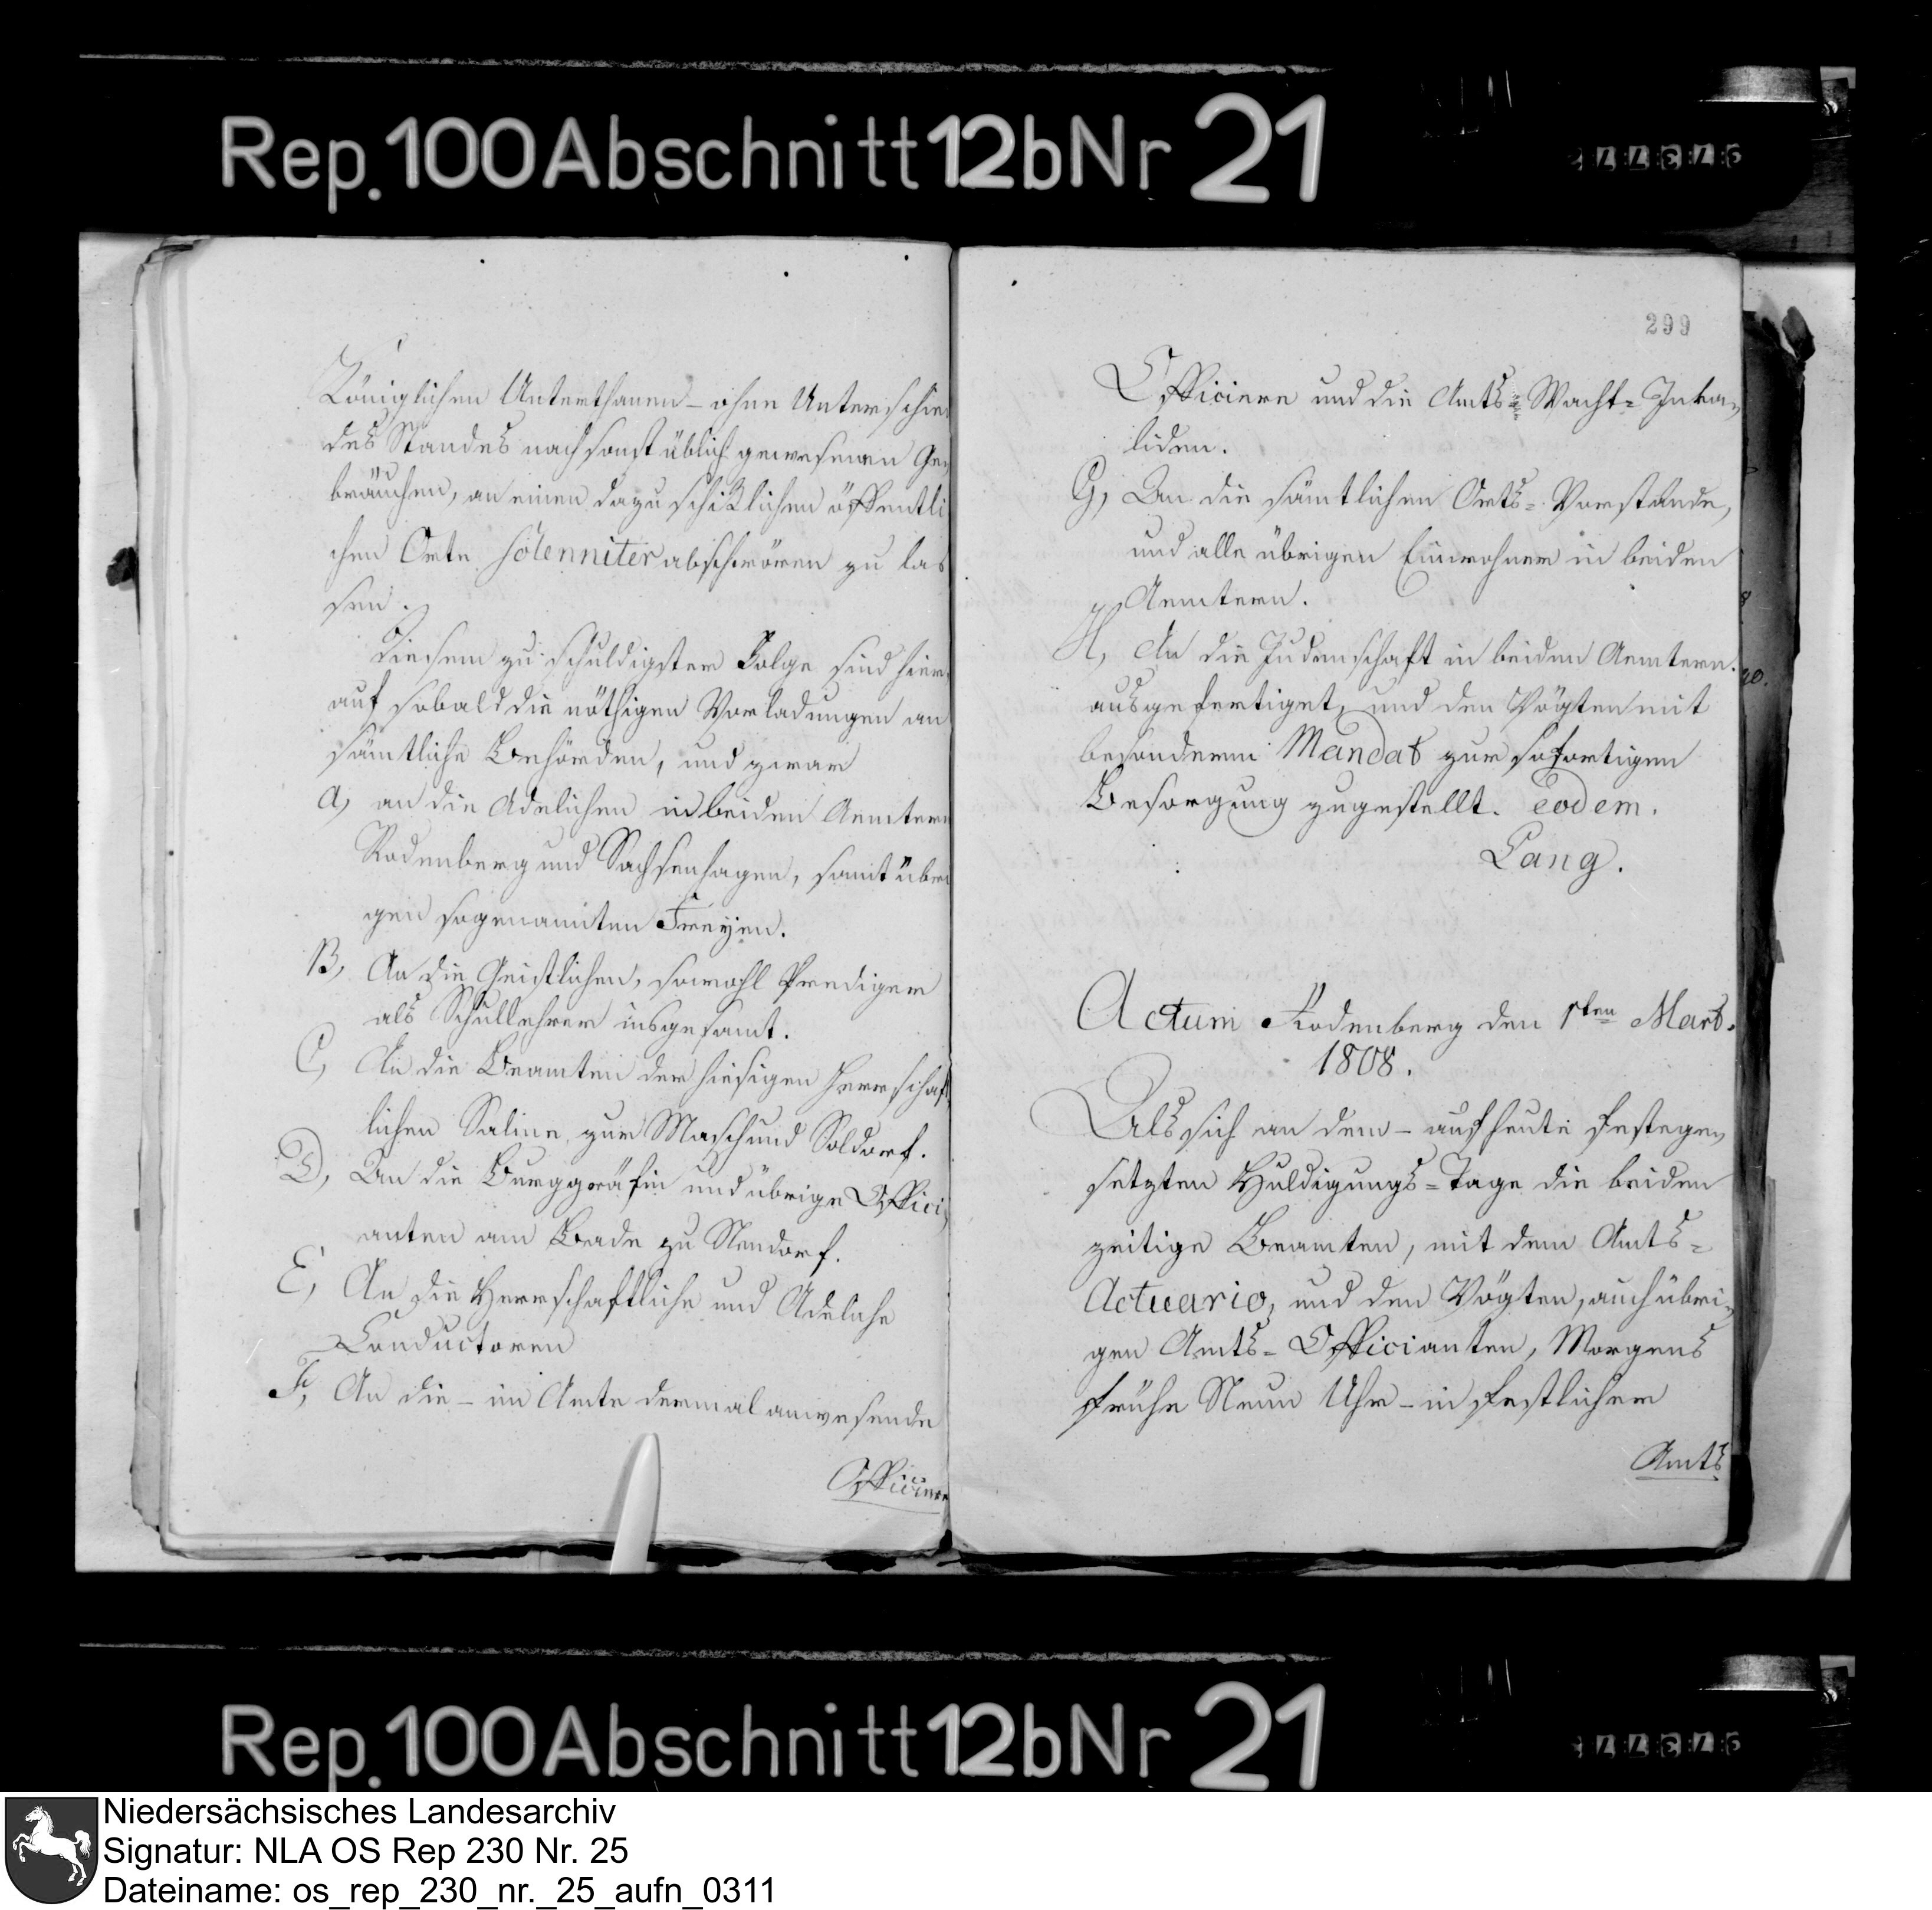 Rep.100 Abschnitt 12b Nr 21
Königlichen Unterthanen - ohne Unterschied
des Standes nach sonst üblich gewesenen Ge,
bräuchen, an einen dazu schiklichen öffentli
chen Orte solenniter abschwören zu las
sen.
Diesem zu schuldigster Folge sind hier,
auf sobald die nöthigen Vorladungen an
sämtliche Behörden, und zwar
A, an die Adelichen in beiden Aemtern
Rodenberg und Sachsenhagen, samt übri
gen sogenannten Freyen.
B, An die Geistlichen, sowohl Prediger
als Schullehrer insgesamt.
C, An die Beamten der hiesigen Herrschaft
lichen Saline zur Masch und Soldorf.
D, An die Burggräfin und übrige Offici,
anten am Bade zu Nendorf.
E, An die Herrschaftliche und Adeliche
Conductoren
F, An die - im Amte dermal anwesende
Officiere
299
Officiere und die Amts= Wacht= Inva,
liden.
G, An die sämtlichen Orts= Vorstände,
und alle übrigen Einwohner in beiden
Aemtern.
H, An die Judenschaft in beiden Aemtern.
ausgefertiget, und den Vögten mit
besonderm Mandat zur sofortigen
Besorgung zugestellt. eodem.
Lang.
Actum Rodenberg den 1ten Mart.
1808.
Als sich an dem - auf heute festege,
setzten Huldigungs=Tage die beiden
zeitige Beamten, mit dem Amts=
Actuario, und den Vögten, auch übri,
gen Amts= Officianten, Morgens
frühe Neun Uhr - in festlicher
Amts
Rep.100 Abschnitt 12b Nr 21
Niedersächsisches Landesarchiv
Signatur: NLA OS Rep 230 Nr. 25
Dateiname: os_rep_230_nr._25_aufn_0311